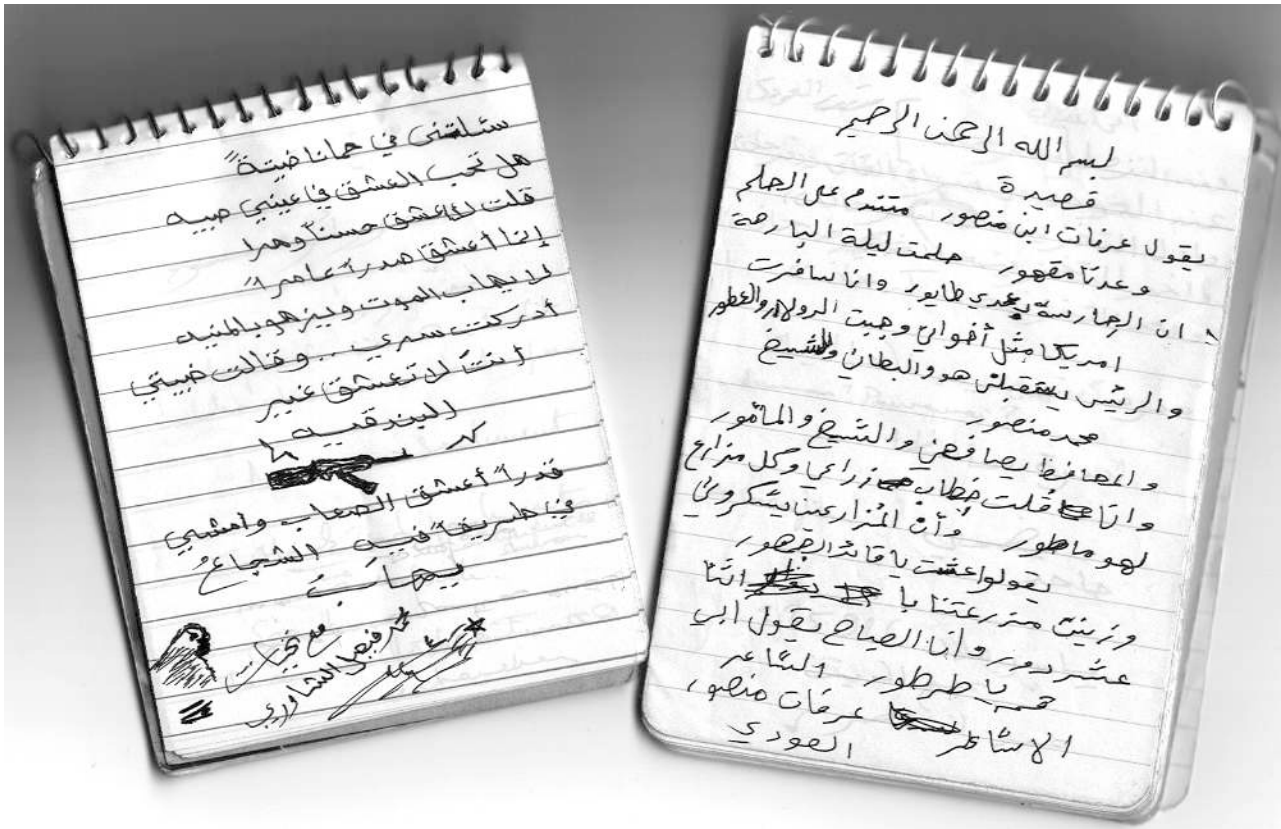 بسم الله الرحمن الرحيم
قصيدة
يقول عرفات ابن منصور متندم على الحلم
وعدنا مقهور حلمت ليلة البارحة
ان الحارسة بعدي طابور وانا سافرت
امريكا مثل أخوالي وجبت الدولار والعطور
والرئيس هو والبطان والشيخ
محمد منصور
والمحافظ يصافحني والشيخ والمأمور
وانا قلت خطاب زراعي وكل مزارع
لهو ماطور وأن المزارعينا يشكروني
يقولوا عشت يا قائد الجمهور
وزينت مزرعتنا با اثنا
عشر دور وأنا الصياح يقول ابي
قم يا طرطور الشاعر
الاشاطر عرفات منصور
العودي
سئلتني في حمانا ضيتةً
هل تحب العشق في عيني صبيه
قلت لا أعشق حسناً وهدا
إنما أعشق هدراً عامراً
لا يهاب الموت ويزهو بالمنيه
أدركت سري .. وقالت خيبتي
أنت لا تعشق غير
البندقيه
قدراً أعشق الصعاب وامشي
في طريقاً فيه الشجاعُ
يهابُ
مع تحيات
محمد فيصل الشاوري